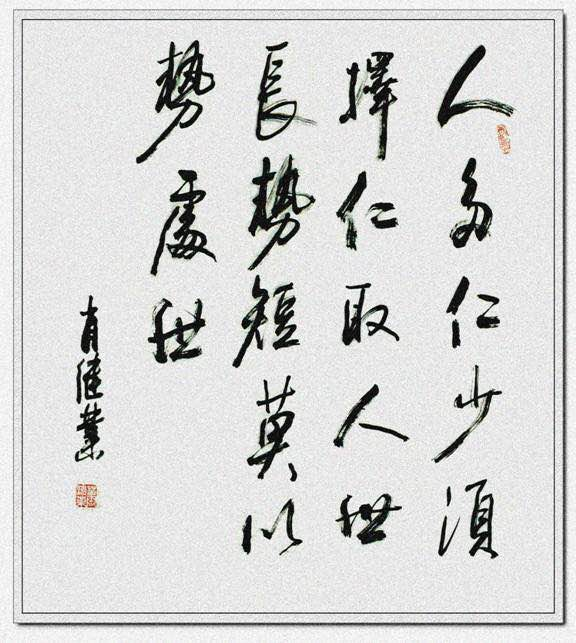 人多仁少須
擇仁取人世
長勢短莫以
勢處世
肖繼業